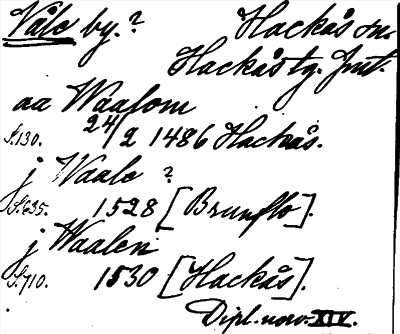 Våle by.? Hackås sn.
Hackås tg. Jmt.
aa Waalom
S. 130. 24/2 1486 Hackås.
j Waale ?
S. 635. 1528 [Brunflo].
j Waalen
S. 710. 1530 [Hackås].
Dipl. norv. XIV.